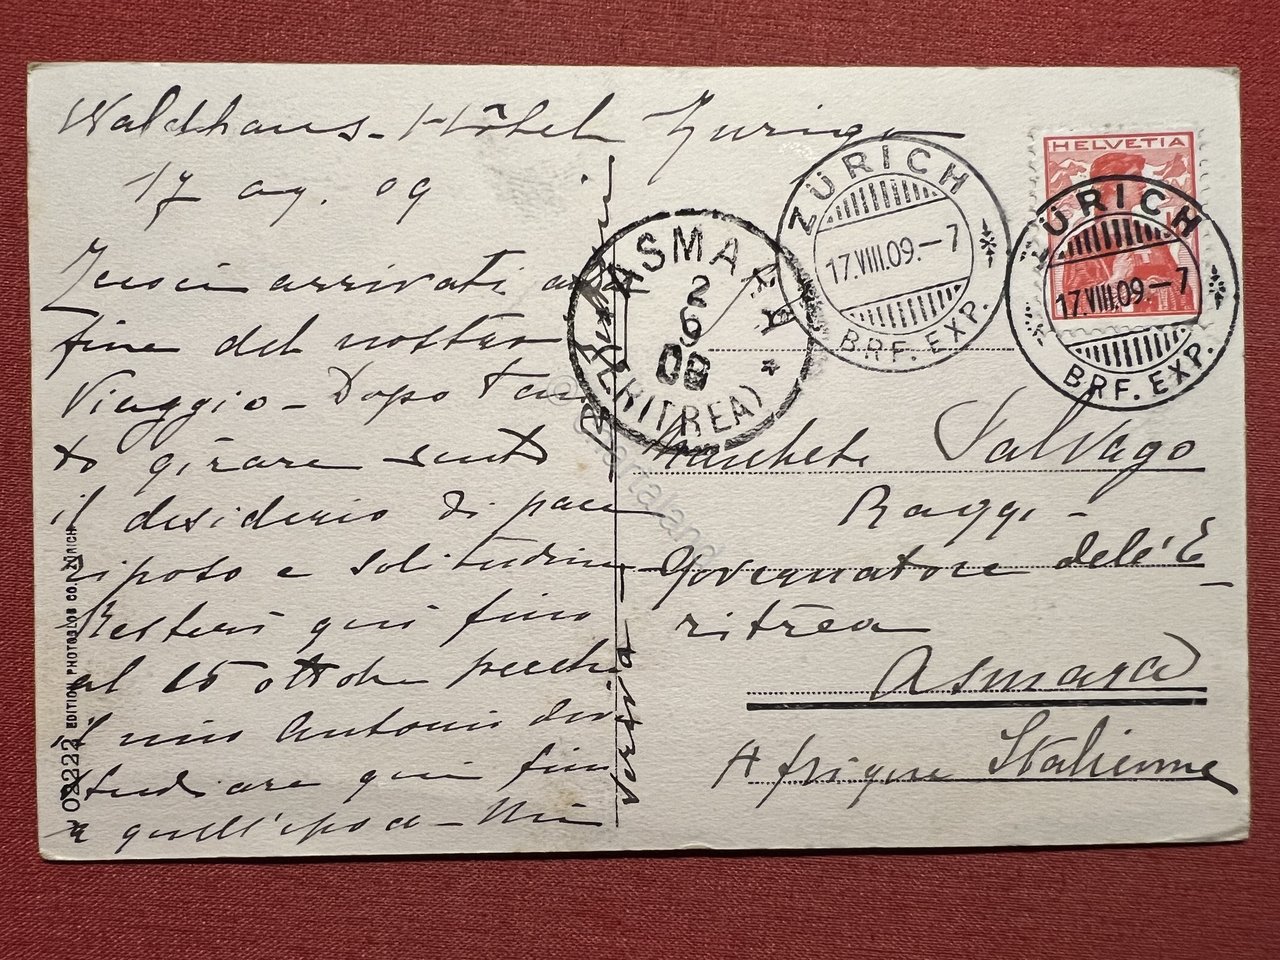 Waldhaus - Hôtel Zurigo
17 ag. 09
Zurich arrivati alla
fine del nostro
Viaggio - Dopo tan
to girare sento
il desiderio di pace
riposo e solitudine
Resterò qui fino
al 15 ottobre perchè
il mio Antonio dev
studiare qui fino
a quell'epoca - Mi
scriva
Marchese Salvago
Raggi -
Governatore dell'E
ritrea
Asmara
Afrique Italienne
HELVETIA
ZÜRICH
17.VIII.09.-7
BRF. EXP.
ZÜRICH
17.VIII.09-7
BRF. EXP.
ASMARA
2
9
09
(ERITREA)
02222 EDITION PHOTOGLOB CO. ZÜRICH
© cartaland